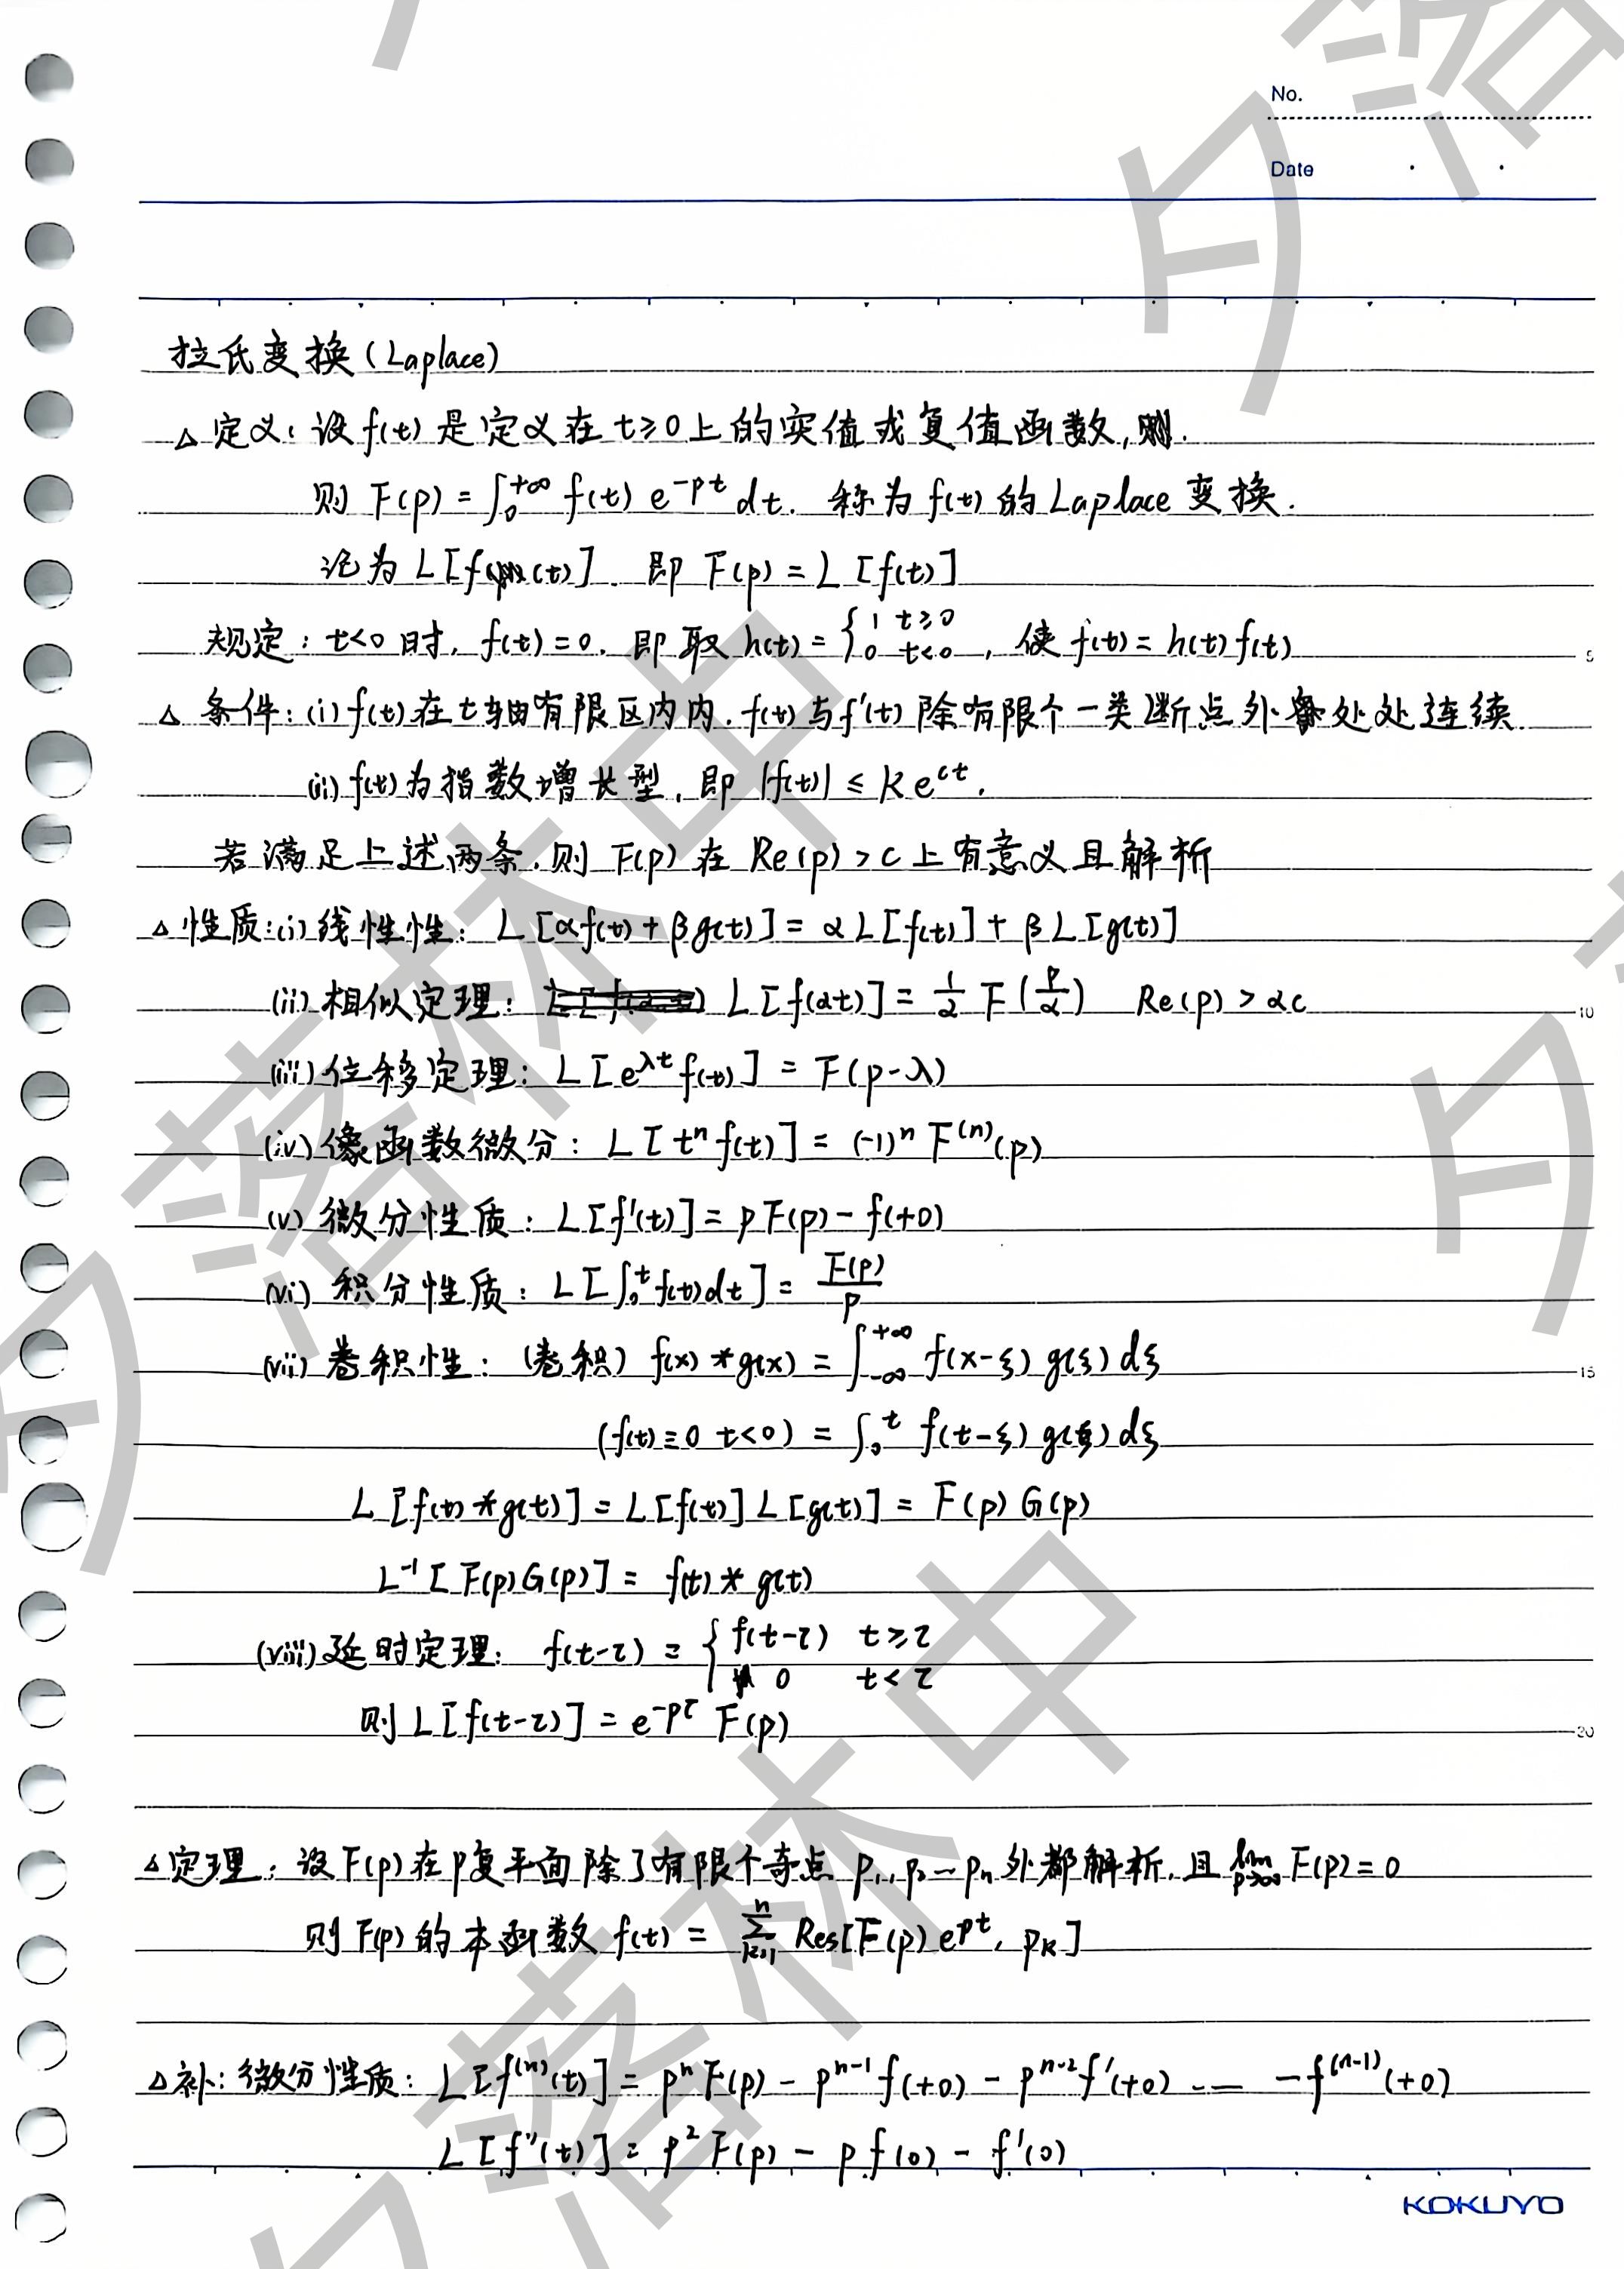 No.
Date
拉氏变换(Laplace)
△ 定义: 设 f(t) 是定义在 t≥0 上的实值或复值函数,
则 F(p) = ∫₀^{+∞} f(t) e^{-pt} dt. 称为 f(t) 的 Laplace 变换.
记为 L[f(t)]. 即 F(p) = L[f(t)]
规定: t<0 时, f(t)=0. 即取 h(t) = { 1 t≥0 ; 0 t<0 , 使 f(t) = h(t) f(t)
5
△ 条件: (i) f(t) 在 t 轴有限区内内. f(t) 与 f'(t) 除有限个一类断点外处处连续.
(ii) f(t) 为指数增长型, 即 |f(t)| ≤ k e^{ct}.
若满足上述两条, 则 F(p) 在 Re(p) > c 上有意义且解析
△ 性质: (i) 线性性: L[αf(t) + βg(t)] = αL[f(t)] + βL[g(t)]
(ii) 相似定理: L[f(αt)] = 1/2 F(p/α) Re(p) > αc
10
(iii) 位移定理: L[e^{λt} f(t)] = F(p-λ)
(iv) 像函数微分: L[t^n f(t)] = (-1)^n F^{(n)}(p)
(v) 微分性质: L[f'(t)] = pF(p) - f(+0)
(vi) 积分性质: L[∫₀^t f(t)dt] = F(p)/p
(vii) 卷积性: (卷积) f(x) * g(x) = ∫_{-∞}^{+∞} f(x-ξ) g(ξ) dξ
15
(f(t)≡0 t<0) = ∫₀^t f(t-ξ) g(ξ) dξ
L[f(t) * g(t)] = L[f(t)] L[g(t)] = F(p) G(p)
L^{-1}[F(p)G(p)] = f(t) * g(t)
(viii) 延时定理: f(t-τ) = { f(t-τ) t≥τ ; 0 t<τ
则 L[f(t-τ)] = e^{-pτ} F(p)
20
△ 定理: 设 F(p) 在 p 复平面除了有限个奇点 p₁, p₂ … pₙ 外都解析, 且 lim_{p→∞} F(p) = 0
则 F(p) 的本函数 f(t) = Σ_{k=1}^{n} Res[F(p) e^{pt}, p_k]
△ 补: 微分性质: L[f^{(n)}(t)] = p^n F(p) - p^{n-1} f(+0) - p^{n-2} f'(+0) …… - f^{(n-1)}(+0)
L[f''(t)] = p² F(p) - p f(0) - f'(0)
KOKUYO
夕落林中
夕落林中
夕落
夕